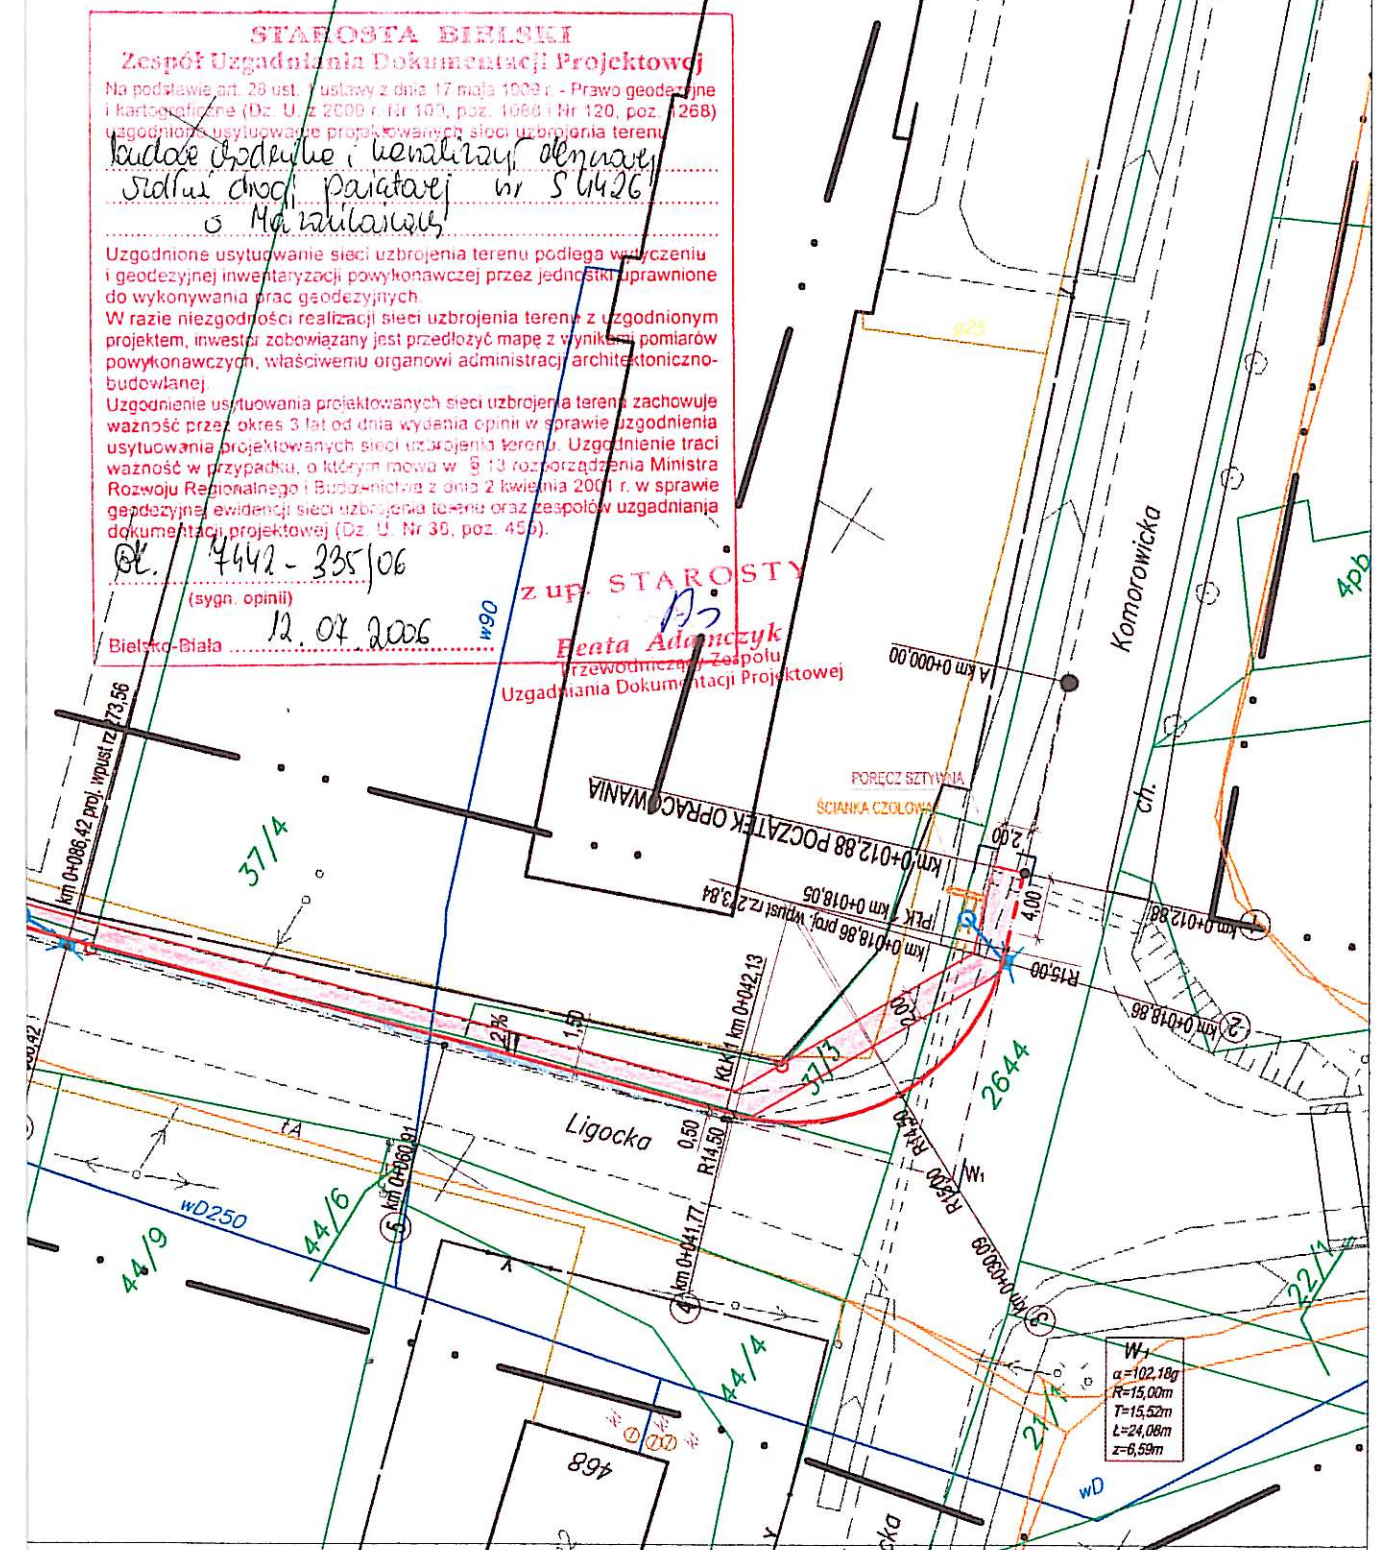 STAROSTA BIELSKI
Zespół Uzgadniania Dokumentacji Projektowej
Na podstawie art. 28 ust. 1 ustawy z dnia 17 maja 1989 r. - Prawo geodezyjne
i kartograficzne (Dz. U. z 2000 r. Nr 100, poz. 1086 i Nr 120, poz. 1268)
uzgodniono usytuowanie projektowanych sieci uzbrojenia terenu
budowę chodnika i kanalizacji
drogi nr S 4426
Uzgodnione usytuowanie sieci uzbrojenia terenu podlega wytyczeniu
i geodezyjnej inwentaryzacji powykonawczej przez jednostki uprawnione
do wykonywania prac geodezyjnych.
W razie niezgodności realizacji sieci uzbrojenia terenu z uzgodnionym
projektem, inwestor zobowiązany jest przedłożyć mapę z wynikami pomiarów
powykonawczych, właściwemu organowi administracji architektoniczno-
budowlanej.
Uzgodnienie usytuowania projektowanych sieci uzbrojenia terenu zachowuje
ważność przez okres 3 lat od dnia wydania opinii w sprawie uzgodnienia
usytuowania projektowanych sieci uzbrojenia terenu. Uzgodnienie traci
ważność w przypadku, o którym mowa w § 13 rozporządzenia Ministra
Rozwoju Regionalnego i Budownictwa z dnia 2 kwietnia 2001 r. w sprawie
geodezyjnej ewidencji sieci uzbrojenia terenu oraz zespołów uzgadniania
dokumentacji projektowej (Dz. U. Nr 38, poz. 455).
GK. 7442-335/06
(sygn. opinii)
Bielsko-Biała 12.07.2006
z up. STAROSTY
Beata Adamczyk
Przewodniczący Zespołu
Uzgadniania Dokumentacji Projektowej
w90
g25
Komorowicka
4pb
A km 0+000,00
km 0+086,42 proj. wpust rz.273,56
37/4
PORĘCZ SZTYWNA
ŚCIANKA CZOŁOWA
km 0+012,88 POCZĄTEK OPRACOWANIA
ch.
2,00
4,00
PŁK 1 km 0+018,05
km 0+018,86 proj. wpust rz.273,84
km 0+012,88
1
R15,00
km 0+018,86
2
KŁK 1 km 0+042,13
2%
1,50
2,00
37/3
2644
Ligocka
0,50
R14,50
R14,50
R15,00
W1
tA
5 km 0+060,91
wD250
44/6
44/9
4 km 0+041,77
3 km 0+030,09
22/1
44/4
21/1
W1
α=102,18g
R=15,00m
T=15,52m
Ł=24,08m
z=6,59m
468
wD
cka